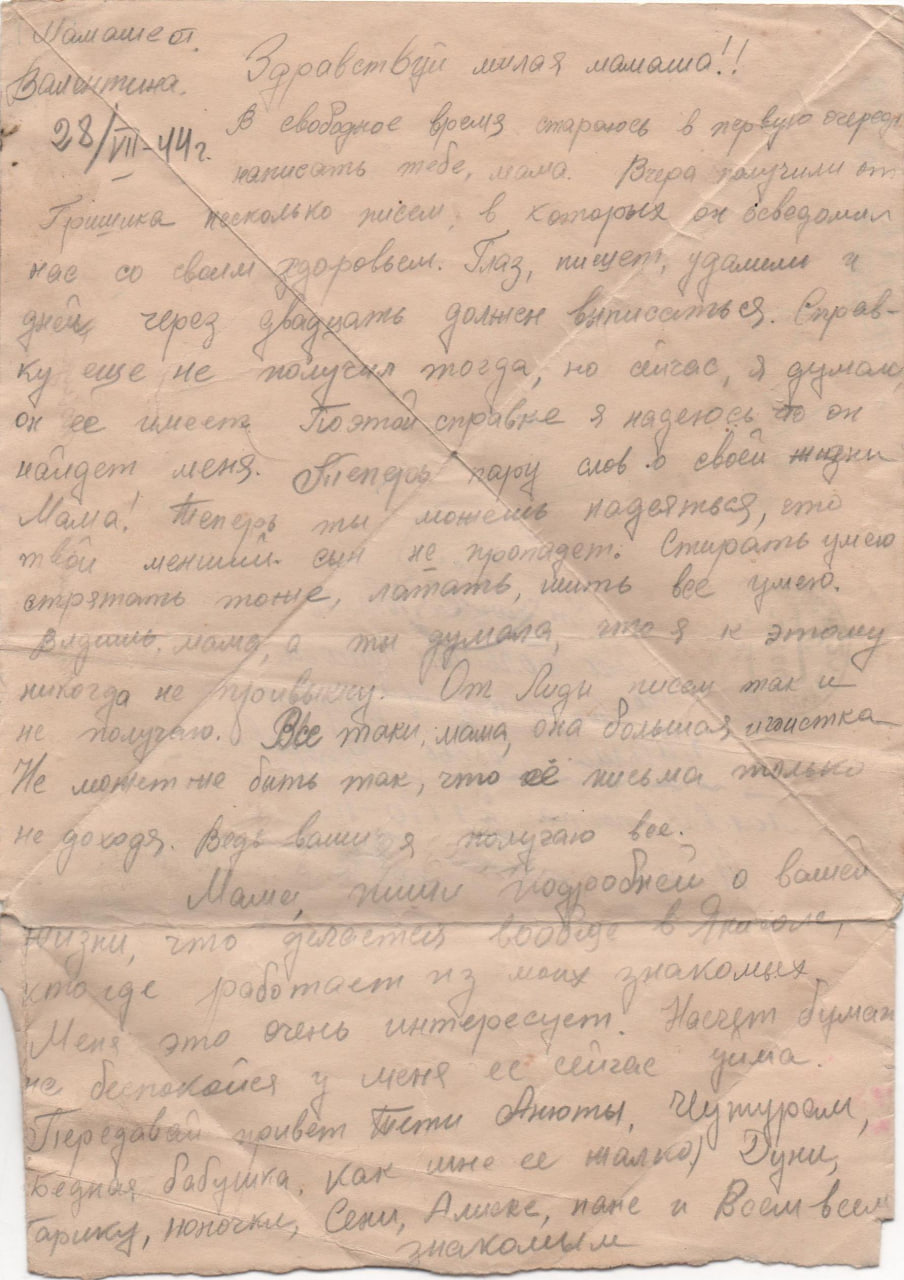 Мамаше от
Валентина.
28/VII-44 г.
Здравствуй милая мамаша!!
В свободное время стараюсь в первую очередь
написать тебе, мама. Вчера получили от
Гришика несколько писем, в которых он осведомил
нас со своим здоровьем. Глаз, пишет, удалили и
дней через двадцать должен выписаться. Справ-
ку еще не получил тогда, но сейчас, я думаю,
он ее имеет. Поэтой справке я надеюсь то он
найдет меня. Теперь пару слов о своей жизни
Мама! Теперь ты можешь надеяться, что
твой менший сын не пропадет. Стирать умею
стряпать тоже, латать, шить все умею.
Видишь, мама, а ты думала, что я к этому
никогда не привыкну. От Лиди писем так и
не получаю. Все таки, мама, она большая игоистка
Не может же быть так, что её письма только
не доходя. Ведь ваши я получаю все.
Мама, пиши подробней о вашей
жизни, что делается вообще в
кто где работает из моих знакомых.
Меня это очень интересует. Насчёт бумаги
не беспокойся у меня ее сейчас уйма.
Передавай привет Тети Анюты, Чужурам,
Бедная бабушка, как мне ее жалко) Дуни,
Гарику, нопочки, Сени, Алиске, папе и Всем всем
знакомым